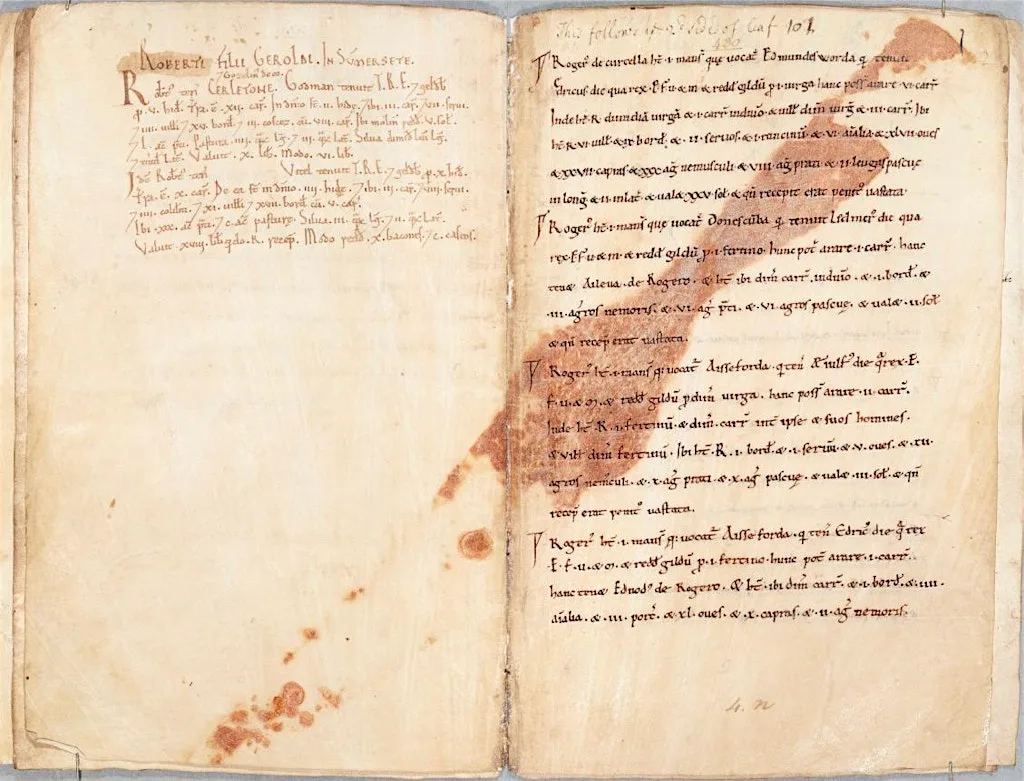 ROBERTI FILII GEROLDI. IN SUMERSETE.
Rotbt ten CERLETONE. Godman tenuit T.R.E. 7 geldb
p. v. hid. Tra. ē. xii. car. In dnio st. ii. hide. 7 ibi. iii. car. 7 vii. serui.
7 iiii. uilli 7 xv. bord. 7 iii. cū. viii. car. Ibi molin redd. v. sol.
7 L. ac pti. Pastura. iii. lg. 7 i. lat. Silua dimid leu lg.
7 tntd lat. Valuit. x. lib. Modo. vi. lib.
Idē Robt ten Vitel tenuit T.R.E. 7 geldb. p. x. hid.
Tra. ē. x. car. De ea st in dnio. iiii. hide. 7 ibi. ii. car. 7 viii. serui.
7 iiii. colibti. 7 xi. uilli 7 xvii. bord cū. v. car.
Ibi. xxx. ac pti. 7 c. ac pasture. Silua. iii. lg. 7 ii. lat.
Valuit. xviii. lib qdo. R. recep. Modo redd. x. bacones. 7 c. caseos.
This follows ye 2d side of leaf 101
480
Roger de curcella ht. i. mans que uocat Edmundesworda q tenuit
Edricus die qua rex. E. f. u. & m. & redd gildū p. i. uirga hanc poss arare. vi. carr
Inde ht. R. dimidiā uirgā & i. carr indnio. & uitt dim uirg & iii. carr. Ibi
ht. R. vi. uitt. & bord. & ii. seruos. & i. roncinū. & vi. aialia. & xlvii. oues
& xxvii. capras & xxx. ag nemusculi & viii. ag prati & ii. leugas pascue
in long & ii. inlat. & ualæ xxv. sol. & qn recepit erat penit uastata.
Roger ht. i. mans que uocat Donescuba q tenuit Lefmer die qua
rex. E. f. u. & m. & redd gildū p. i. fertino. hunc pot arare. i. carr. hanc
tenæ Aileua. de Rogero. & ht ibi dim carr. indnio. & i. bord. &
iii. agros nemoris. & vi. ag pti. & vi. agros pascue. & ualæ. ii. sol
& qn recep erat uastata.
Roger ht. i. mans q uocat Aisseforda. q ten uuit die q rex. E.
f. u. & m. & redd gildū p dim uirga. hanc poss arare. ii. carr.
Inde ht. R. i. fertinū. & dim. carr int ipse & suos homines.
& uitt dim fertinū. Ibi ht. R. i. bord. & i. seruū. & v. oues. & xii.
agros nemculi. & x. ag prati. & x. ag pascue. & ualæ. iii. sol. & qn
recep erat penit uastata.
Roger ht. i. mans q uocat Aisseforda. q ten Edric die q rex
E. f. u. & m. & redd gildū p. i. fertino. hunc pot arare. i. carr.
hanc tenæ Ednod de Rogero. & ht. ibi dim carr. & i. bord. & iiii.
aialia. & iii. porc. & xl. oues. & x. capras. & ii. ag nemoris.
4. n